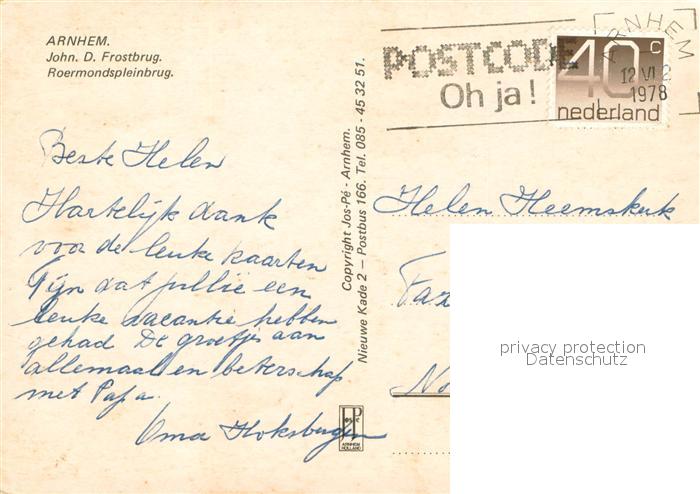 ARNHEM.
John. D. Frostbrug.
Roermondspleinbrug.
POSTCODE
Oh ja!
ARNHEM
12 VI 2
1978
40 c
nederland
Beste Helen
Hartelijk dank
voor de leuke kaarten
Fijn dat jullie een
leuke vacantie hebben
gehad De groetjes aan
allemaal en beterschap
met Papa.
Oma Hoksbergen
Copyright Jos-Pé - Arnhem.
Nieuwe Kade 2 – Postbus 166. Tel. 085 - 45 32 51.
ARNHEM
HOLLAND
Helen Heemskerk
privacy protection
Datenschutz